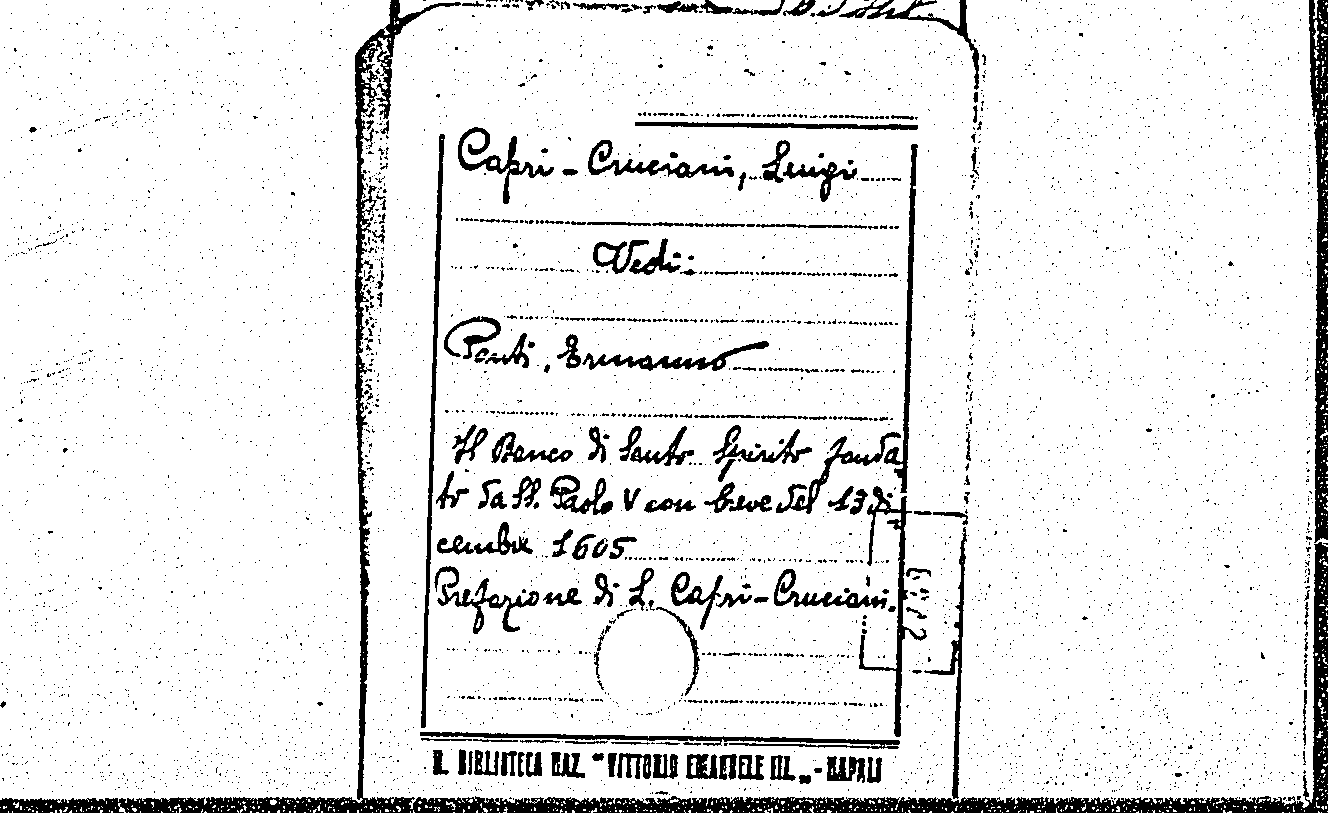 Capri-Cruciani, Luigi
Vedi:
Ponti, Ermanno
Il Banco di Santo Spirito fonda
to da SS. Paolo V con breve del 13 di
cembre 1605
Prefazione di L. Capri-Cruciani.
R. BIBLIOTECA NAZ. "VITTORIO EMANUELE III. „ - NAPOLI